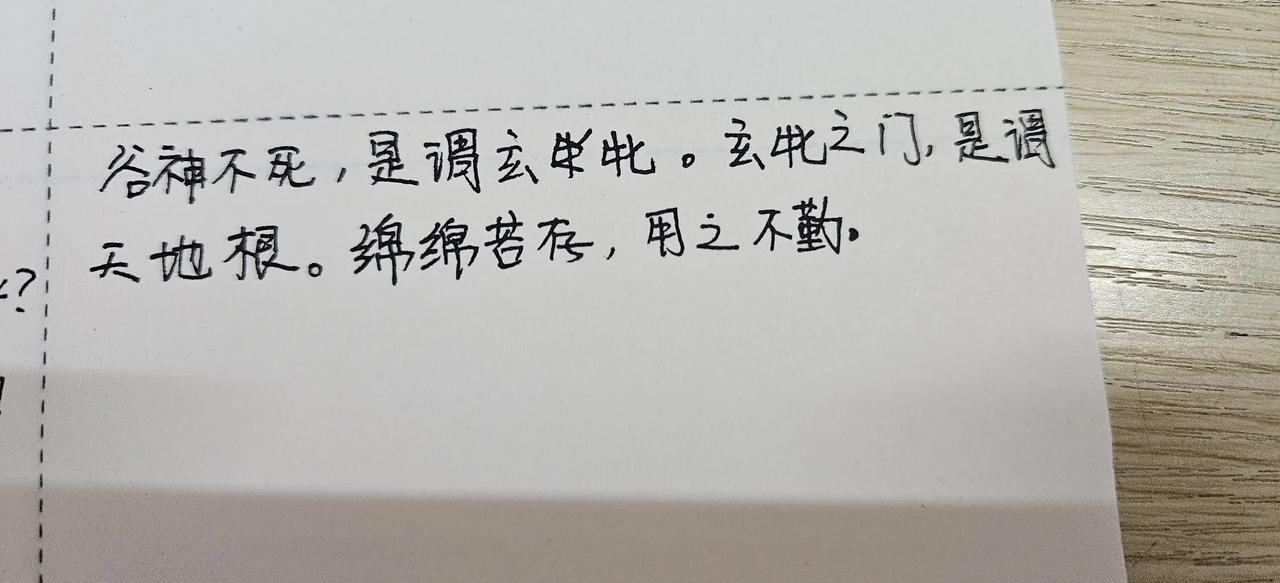 谷神不死,是谓玄牝。玄牝之门,是谓
天地根。绵绵若存,用之不勤。
?